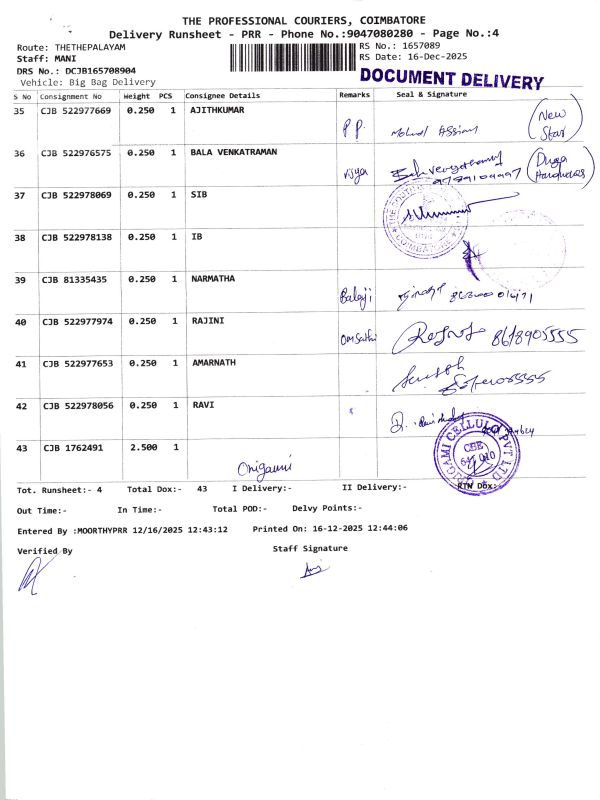 THE PROFESSIONAL COURIERS, COIMBATORE
Delivery Runsheet - PRR - Phone No.:9047080280 - Page No.:4
Route: THETHEPALAYAM
RS No.: 1657089
Staff: MANI
RS Date: 16-Dec-2025
DRS No.: DCJB165708904
DOCUMENT DELIVERY
Vehicle: Big Bag Delivery
S No Consignment No Weight PCS Consignee Details Remarks Seal & Signature
35 CJB 522977669 0.250 1 AJITHKUMAR
P.P. (New Star)
36 CJB 522976575 0.250 1 BALA VENKATRAMAN
37 CJB 522978069 0.250 1 SIB
38 CJB 522978138 0.250 1 IB
39 CJB 81335435 0.250 1 NARMATHA
Balaji
40 CJB 522977974 0.250 1 RAJINI
8618905555
41 CJB 522977653 0.250 1 AMARNATH
42 CJB 522978056 0.250 1 RAVI
43 CJB 1762491 2.500 1
CELLULO PVT LTD
CBE
Tot. Runsheet:- 4 Total Dox:- 43 I Delivery:- II Delivery:- RTN Dox:-
Out Time:- In Time:- Total POD:- Delvy Points:-
Entered By :MOORTHYPRR 12/16/2025 12:43:12 Printed On: 16-12-2025 12:44:06
Verified By Staff Signature